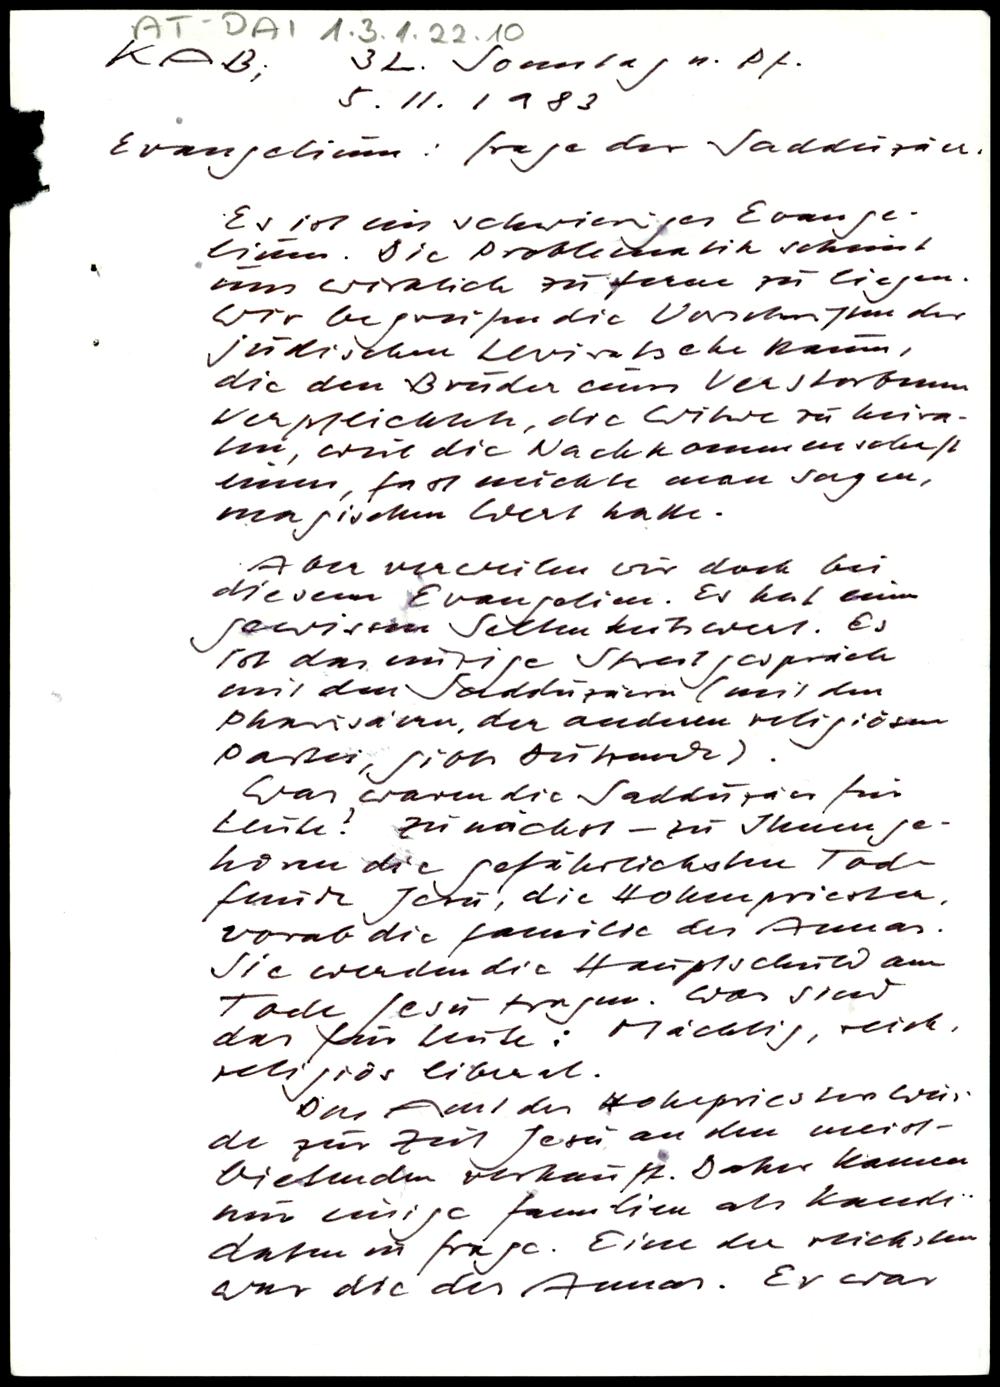 AT-DAI 1.3.1.22.10
KAB, 32. Sonntag n. Pf.
5. 11. 1983
Evangelium: Frage der Sadduzäer.
Es ist ein schwieriges Evange-
lium. Die Problematik scheint
uns wirklich zu ferne zu liegen.
Wir begreifen die Vorschriften der
jüdischen Leviratsehe kaum,
die den Bruder eines Verstorbenen
verpflichtete, die Witwe zu heira-
ten, weil die Nachkommenschaft
einen, fast möchte man sagen,
magischen Wert hatte.
Aber verweilen wir doch bei
diesem Evangelium. Es hat einen
gewissen Seltenheitswert. Es
ist das einzige Streitgespräch
mit den Sadduzäern (mit den
Pharisäern, der anderen religiösen
Partei, gibt's Dutzende).
Was waren die Sadduzäer für
Leute? Zunächst – zu Ihnen ge-
hören die gefährlichsten Tod-
feinde Jesu, die Hohenpriester,
vorab die Familie des Annas.
Sie werden die Hauptschuld am
Tode Jesu tragen. Was sind
das für Leute: Mächtig, reich,
religiös liberal.
Das Amt des Hohepriesters wur-
de zur Zeit Jesu an den meist-
bietenden verkauft. Daher kamen
nur einige Familien als Kandi-
daten in Frage. Eine der reichsten
war die des Annas. Er war